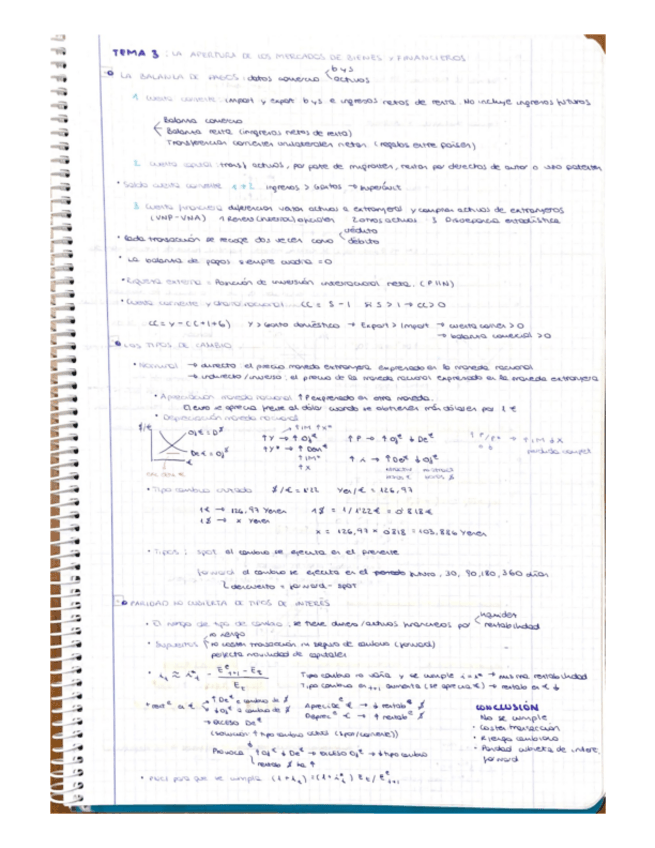 TEMA 3: LA APERTURA DE LOS MERCADOS DE BIENES Y FINANCIEROS
LA BALANZA DE PAGOS: datos comercio b y s
activos
1 Cuenta corriente: import y export b y s e ingresos netos de renta. No incluye ingresos futuros
Balanza comercio
Balanza renta (ingresos netos de renta)
Transferencias corrientes unilaterales netas (regalos entre países)
2 Cuenta capital: transf activos, por parte de migrantes, rentas por derechos de autor o uso patentes
• Saldo cuenta corriente 1+2: ingresos > Gastos → superávit
3 Cuenta financiera diferencia venta activos a extranjeros y compras activos de extranjeros
(VNP-VNA) 1 Reserv (interna) oficiales 2 otros activos 3 Discrepancia estadística
• Cada transacción se recoge dos veces como crédito
débito
• La balanza de pagos siempre cuadra = 0
• Riqueza externa = Posición de inversión internacional neta. (PIIN)
• Cuenta corriente y ahorro nacional CC = S - I Si S > I → CC > 0
CC = Y - (C+I+G) Y > Gasto doméstico → Export > Import → cuenta corrien > 0
→ balanza comercial > 0
LOS TIPOS DE CAMBIO
• Nominal → directo el precio moneda extranjera expresado en la moneda nacional
→ indirecto/inverso: el precio de la moneda nacional expresado en la moneda extranjera
• Apreciación moneda nacional ↑P expresado en otra moneda.
El euro se aprecia frente al dólar cuando se obtienen más dólares por 1 €
• Depreciación moneda nacional
$/€ Of€ = D$
De€ = Of$
€
↑IM ↑X*
↑Y → ↑Of€ ↑P → ↑Of€ ↓De€
↑Y* → ↑Dem€
↑IM*
↑X
↑i → ↑De€ ↓Of€
↑P/P* → ↑IM ↓X
• Tipo cambio cruzado $/€ = 1'22 Yen/€ = 126,97
1€ → 126,97 Yenes 1$ = 1/1'22€ = 0'818€
1$ → x Yenes
x = 126,97 × 0'818 = 103,886 Yenes
• Tipos: spot el cambio se ejecuta en el presente
forward el cambio se ejecuta en el futuro, 30, 90, 180, 360 días
descuento = forward - spot
PARIDAD NO CUBIERTA DE TIPOS DE INTERÉS
• El riesgo de tipo de cambio: se tiene divisa/activos financieros por liquidez
rentabilidad
• Supuestos no riesgo
no costes transacción ni seguro de cambio (forward)
perfecta movilidad de capitales
• iₜ ≈ iₜ* - (Eᵉₜ₊₁ - Eₜ) / Eₜ
Tipo cambio no varía y se cumple i = i* → misma rentabilidad
Tipo cambio en t+1 aumenta (se aprecia €) → rentab en € ↓
↑De€ a cambio de $
↓Of€ a cambio de $
→ exceso De€
(solución ↑ tipo cambio actual (spot/corriente))
Aprec de € → ↓ rentab $
Deprec € → ↑ rentab $
Provoca ↑Of€ ↓De€ → exceso Of€ → ↓ tipo cambio
CONCLUSIÓN
No se cumple
• Costes transacción
• Riesgo cambiario
• Paridad cubierta de interés,
forward
para que se cumpla (1+iₜ) = (1+iₜ*) Eₜ/Eᵉₜ₊₁